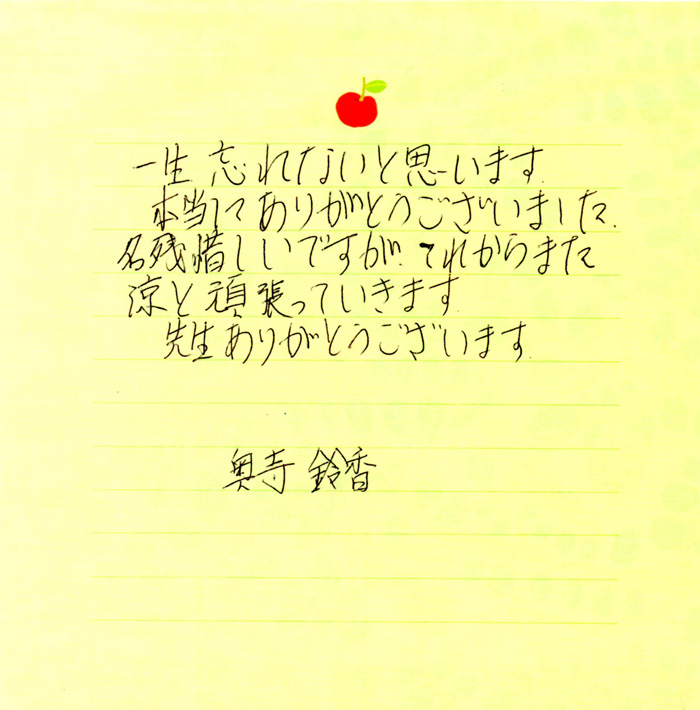 一生忘れないと思います
本当にありがとうございました.
名残惜しいですが.これからまた
涼と頑張っていきます
先生ありがとうございます.
奥寺 鈴香